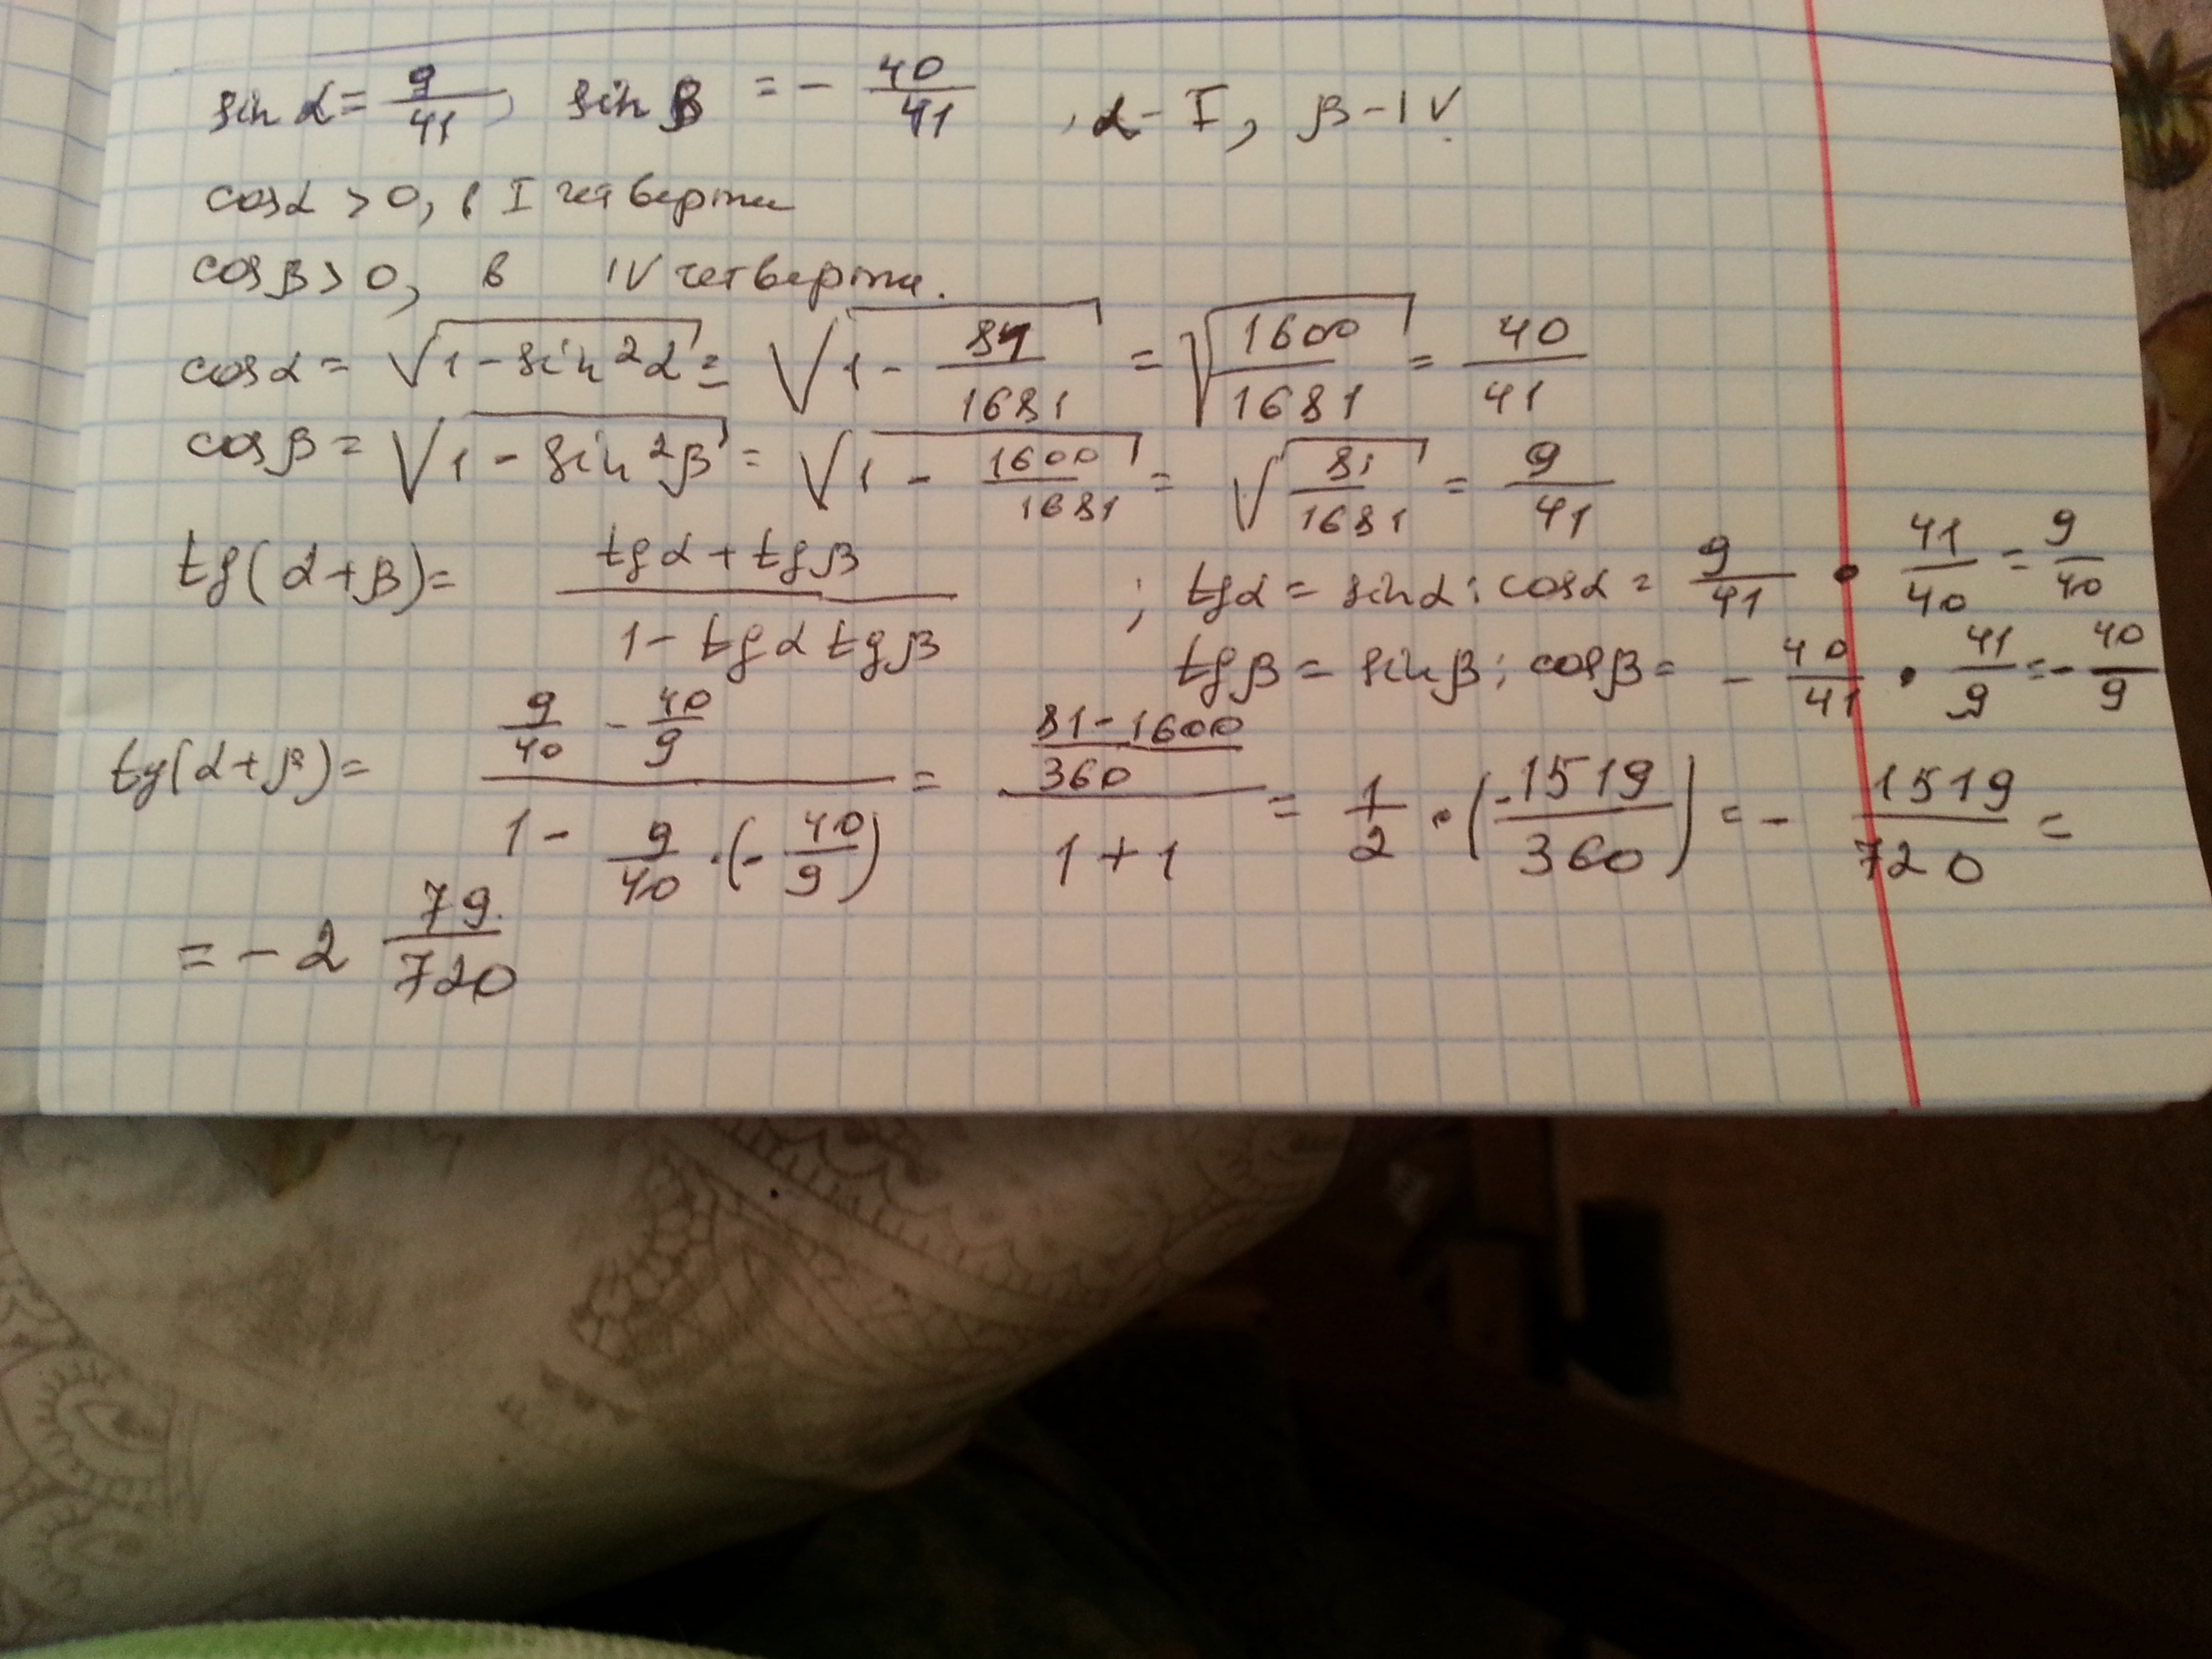 sin α = 9/41, sin β = - 40/41, α - I, β - IV.
cos α > 0, в I четверти
cos β > 0, в IV четверти.
cos α = √(1 - sin²α) = √(1 - 81/1681) = √(1600/1681) = 40/41
cos β = √(1 - sin²β) = √(1 - 1600/1681) = √(81/1681) = 9/41
tg(α+β) = (tg α + tg β)/(1 - tg α tg β) ; tg α = sin α : cos α = 9/41 · 41/40 = 9/40
tg β = sin β : cos β = - 40/41 · 41/9 = - 40/9
tg(α+β) = (9/40 - 40/9)/(1 - 9/40 · (- 40/9)) = ((81-1600)/360)/(1+1) = 1/2 · (-1519/360) = - 1519/720 =
= - 2 79/720